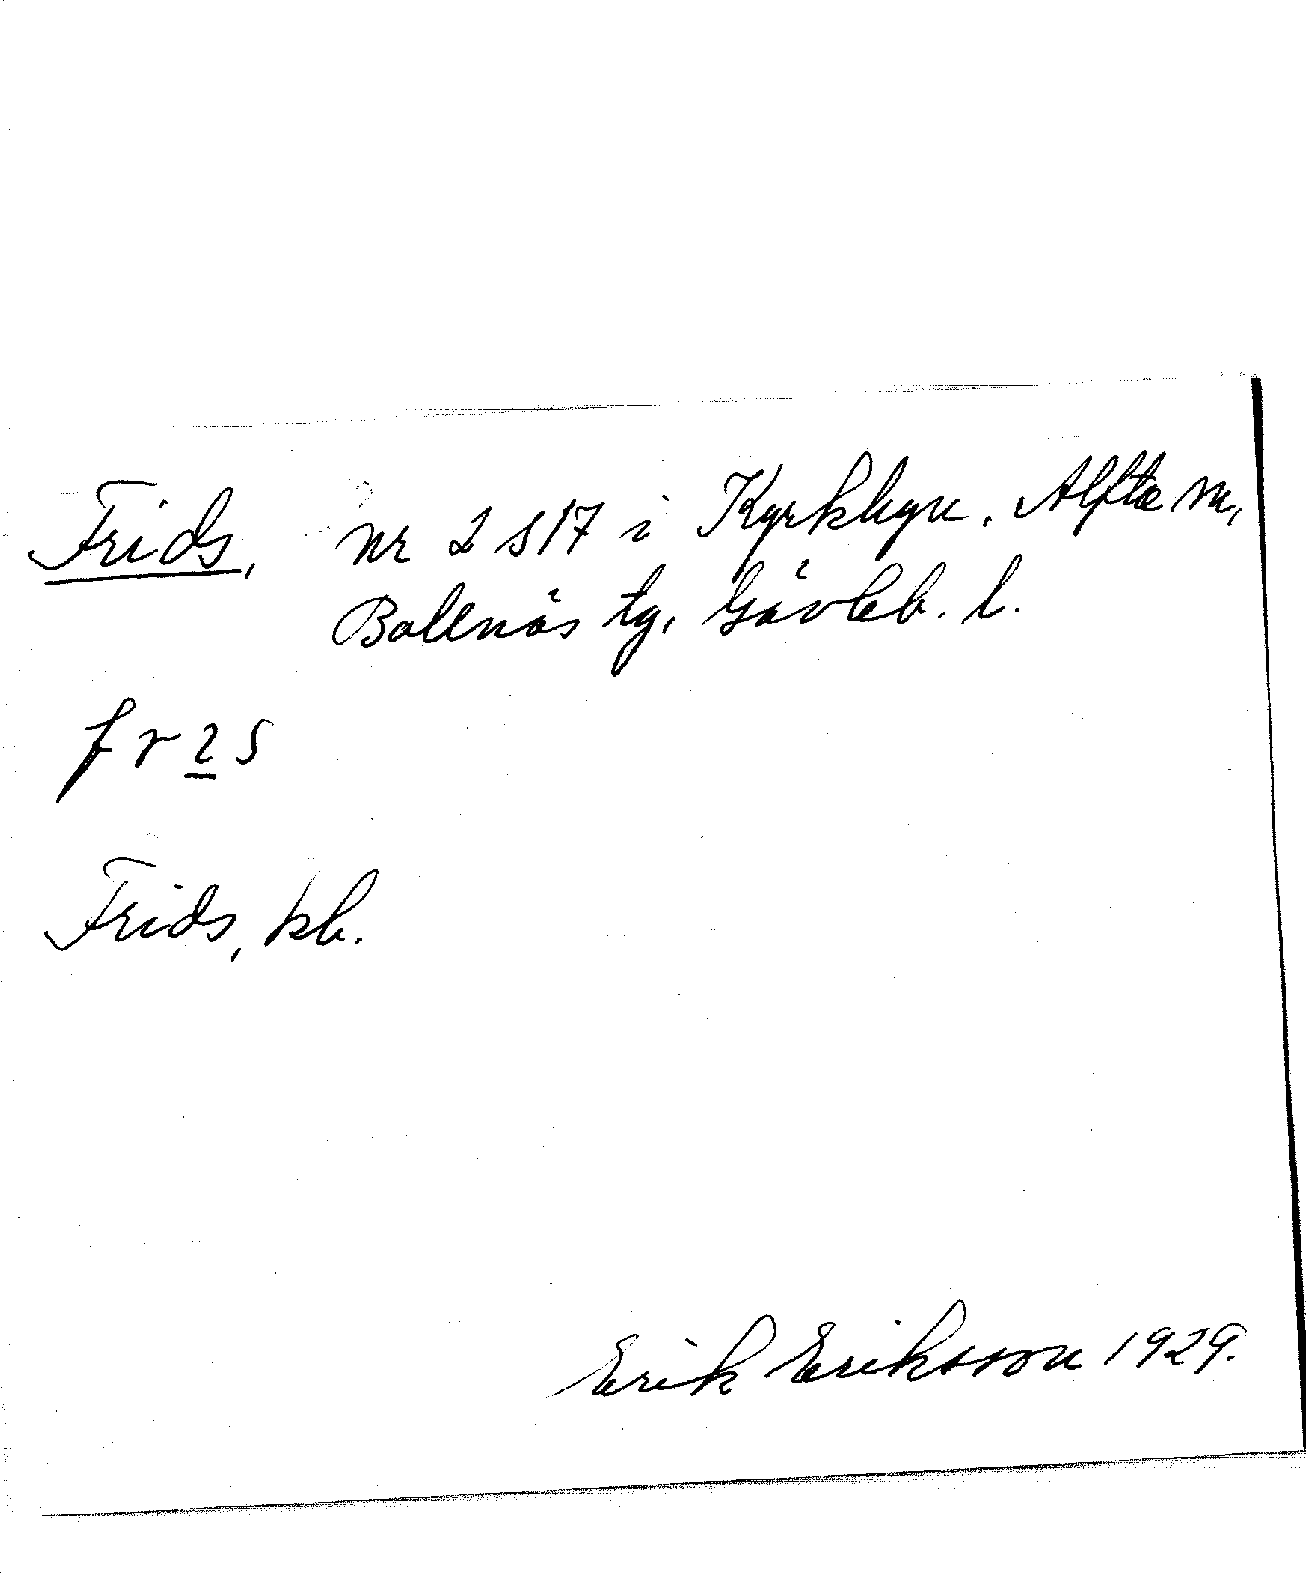 Frids, nr 2 s 17 i Kyrkbyn. Alfta sn,
Bollnäs tg, Gävleb. l.
f r 2 s
Frids, kb.
Erik Eriksson 1929.